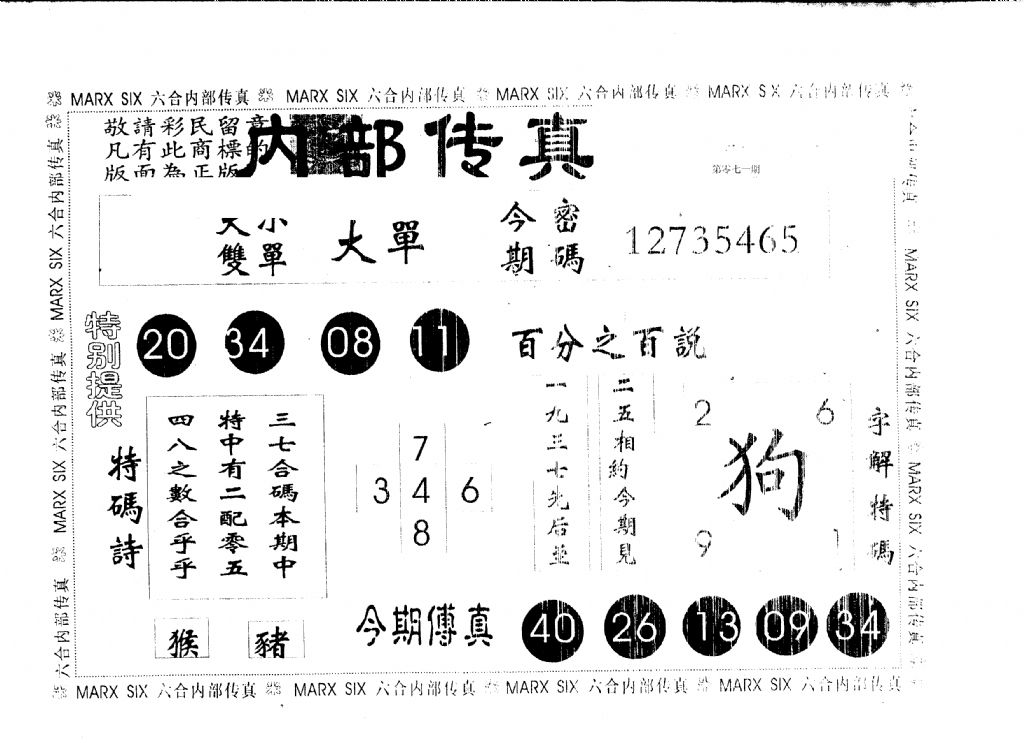 MARX SIX 六合内部传真 MARX SIX 六合内部传真 MARX SIX 六合内部传真 MARX SIX 六合内部传真
敬請彩民留意
凡有此商標的
版面為正版
内部传真
第零七一期
大小
雙單
大單
今期
密碼
12735465
特别提供
20 34 08 11
百分之百説
特碼詩
三七合碼本期中
特中有二配零五
四八之數合乎乎
7
3 4 6
8
二五相約今期見
一九三七先后並
2 6
狗
9 1
字解特碼
猴 豬
今期傳真
40 26 13 09 34
MARX SIX 六合内部传真
MARX SIX 六合内部传真
六合内部传真
MARX SIX 六合内部传真
MARX SIX 六合内部传真
MARX SIX 六合内部传真 MARX SIX 六合内部传真 MARX SIX 六合内部传真 MARX SIX 六合内部传真